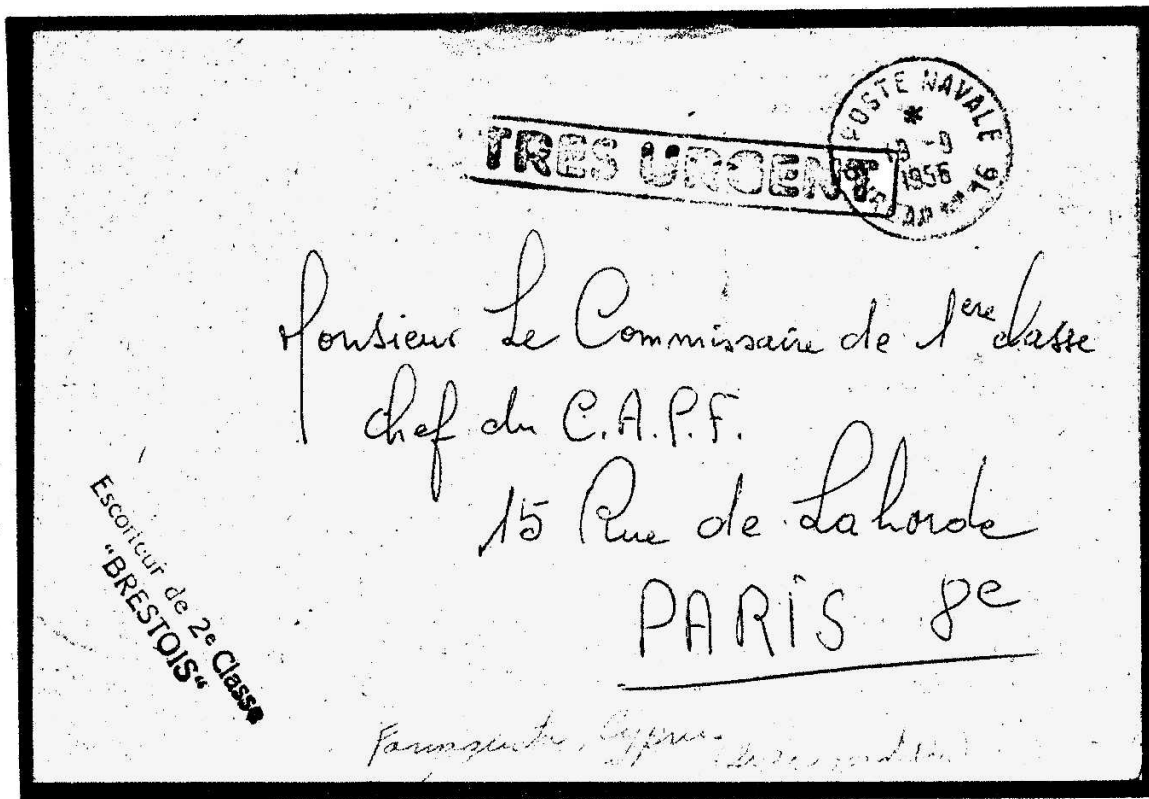 TRES URGENT
POSTE NAVALE
*
-9
1956
76
Monsieur Le Commissaire de 1ere classe
chef du C.A.P.F.
15 Rue de Laborde
PARIS 8e
Escorteur de 2e Classe
"BRESTOIS"
Famagusta, Cyprus